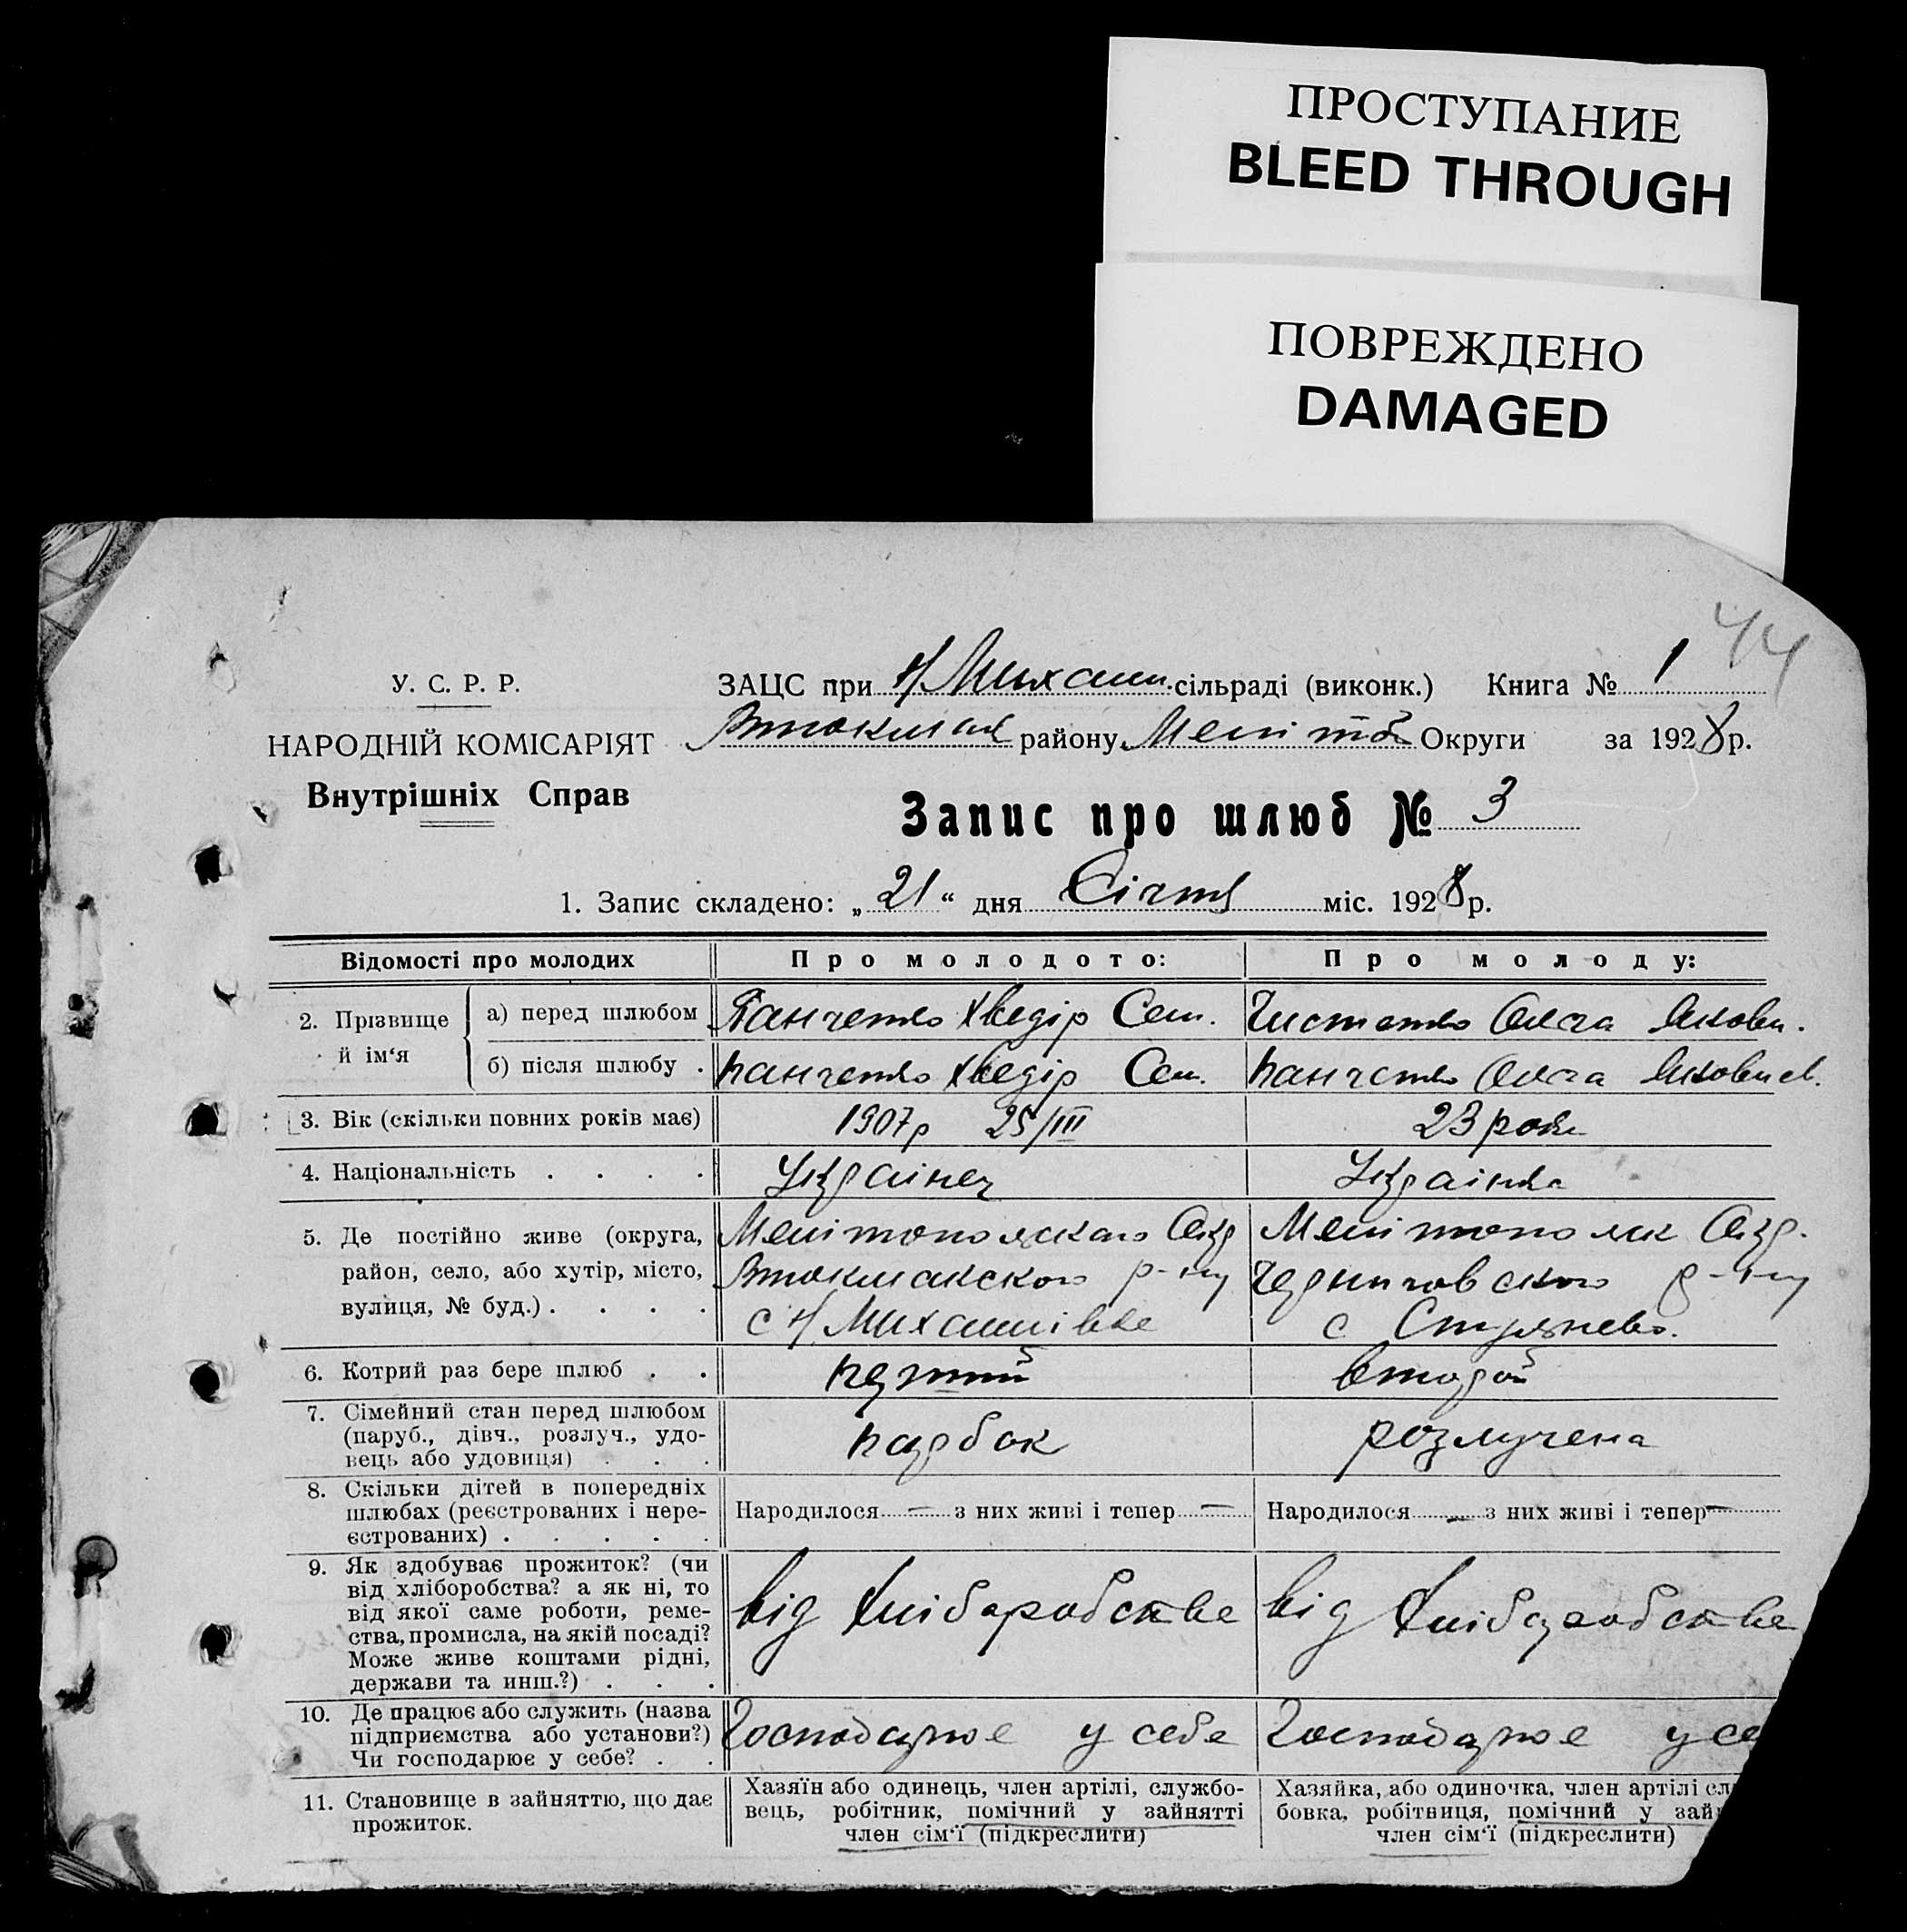 ПРОСТУПАНИЕ
BLEED THROUGH
ПОВРЕЖДЕНО
DAMAGED
44
У. С. Р. Р.
НАРОДНІЙ КОМІСАРІЯТ
Внутрішніх Справ
ЗАЦС при Н/Михайл. сільраді (виконк.) Книга № 1
Втокмак району Меліт Округи за 1928 р.
Запис про шлюб № 3
1. Запис складено: „21“ дня Січня міс. 1928 р.
Відомості про молодих
Про молодого:
Про молоду:
2. Прізвище й ім‘я
а) перед шлюбом
Панченко Хведір Сем.
Чистенко Олга Яковл.
б) після шлюбу .
Панченко Хведір Сем.
Панченко Олга Яковлев.
3. Вік (скільки повних років має)
1907р 25/III
23 роки
4. Національність . . . .
Українец
Українка
5. Де постійно живе (округа,
район, село, або хутір, місто,
вулиця, № буд.) . . . .
Мелітопольскаго Окр
Втокмакского р-ну
с Н/Михайлівке
Мелітопольск Окр.
Черниговского р-ну
с
6. Котрий раз бере шлюб . .
первий
второй
7. Сімейний стан перед шлюбом
(паруб., дівч., розлуч., удо-
вець або удовиця) . . .
парбок
розлучена
8. Скільки дітей в попередніх
шлюбах (реєстрованих і нере-
єстрованих) . . . . .
Народилося — з них живі і тепер —
Народилося — з них живі і тепер —
9. Як здобуває прожиток? (чи
від хліборобства? а як ні, то
від якої саме роботи, реме-
ства, промисла, на якій посаді?
Може живе коштами рідні,
держави та инш.?) . . .
від хліборобства
від хліборобства
10. Де працює або служить (назва
підприємства або установи?)
Чи господарює у себе? . .
Господарює у себе
Господарює у се
11. Становище в зайняттю, що дає
прожиток.
Хазяїн або одинець, член артілі, службо-
вець, робітник, помічний у зайнятті
член сім‘ї (підкреслити)
Хазяйка, або одиночка, член артілі сл
бовка, робітниця, помічний у зай
член сім‘ї (підкреслити)